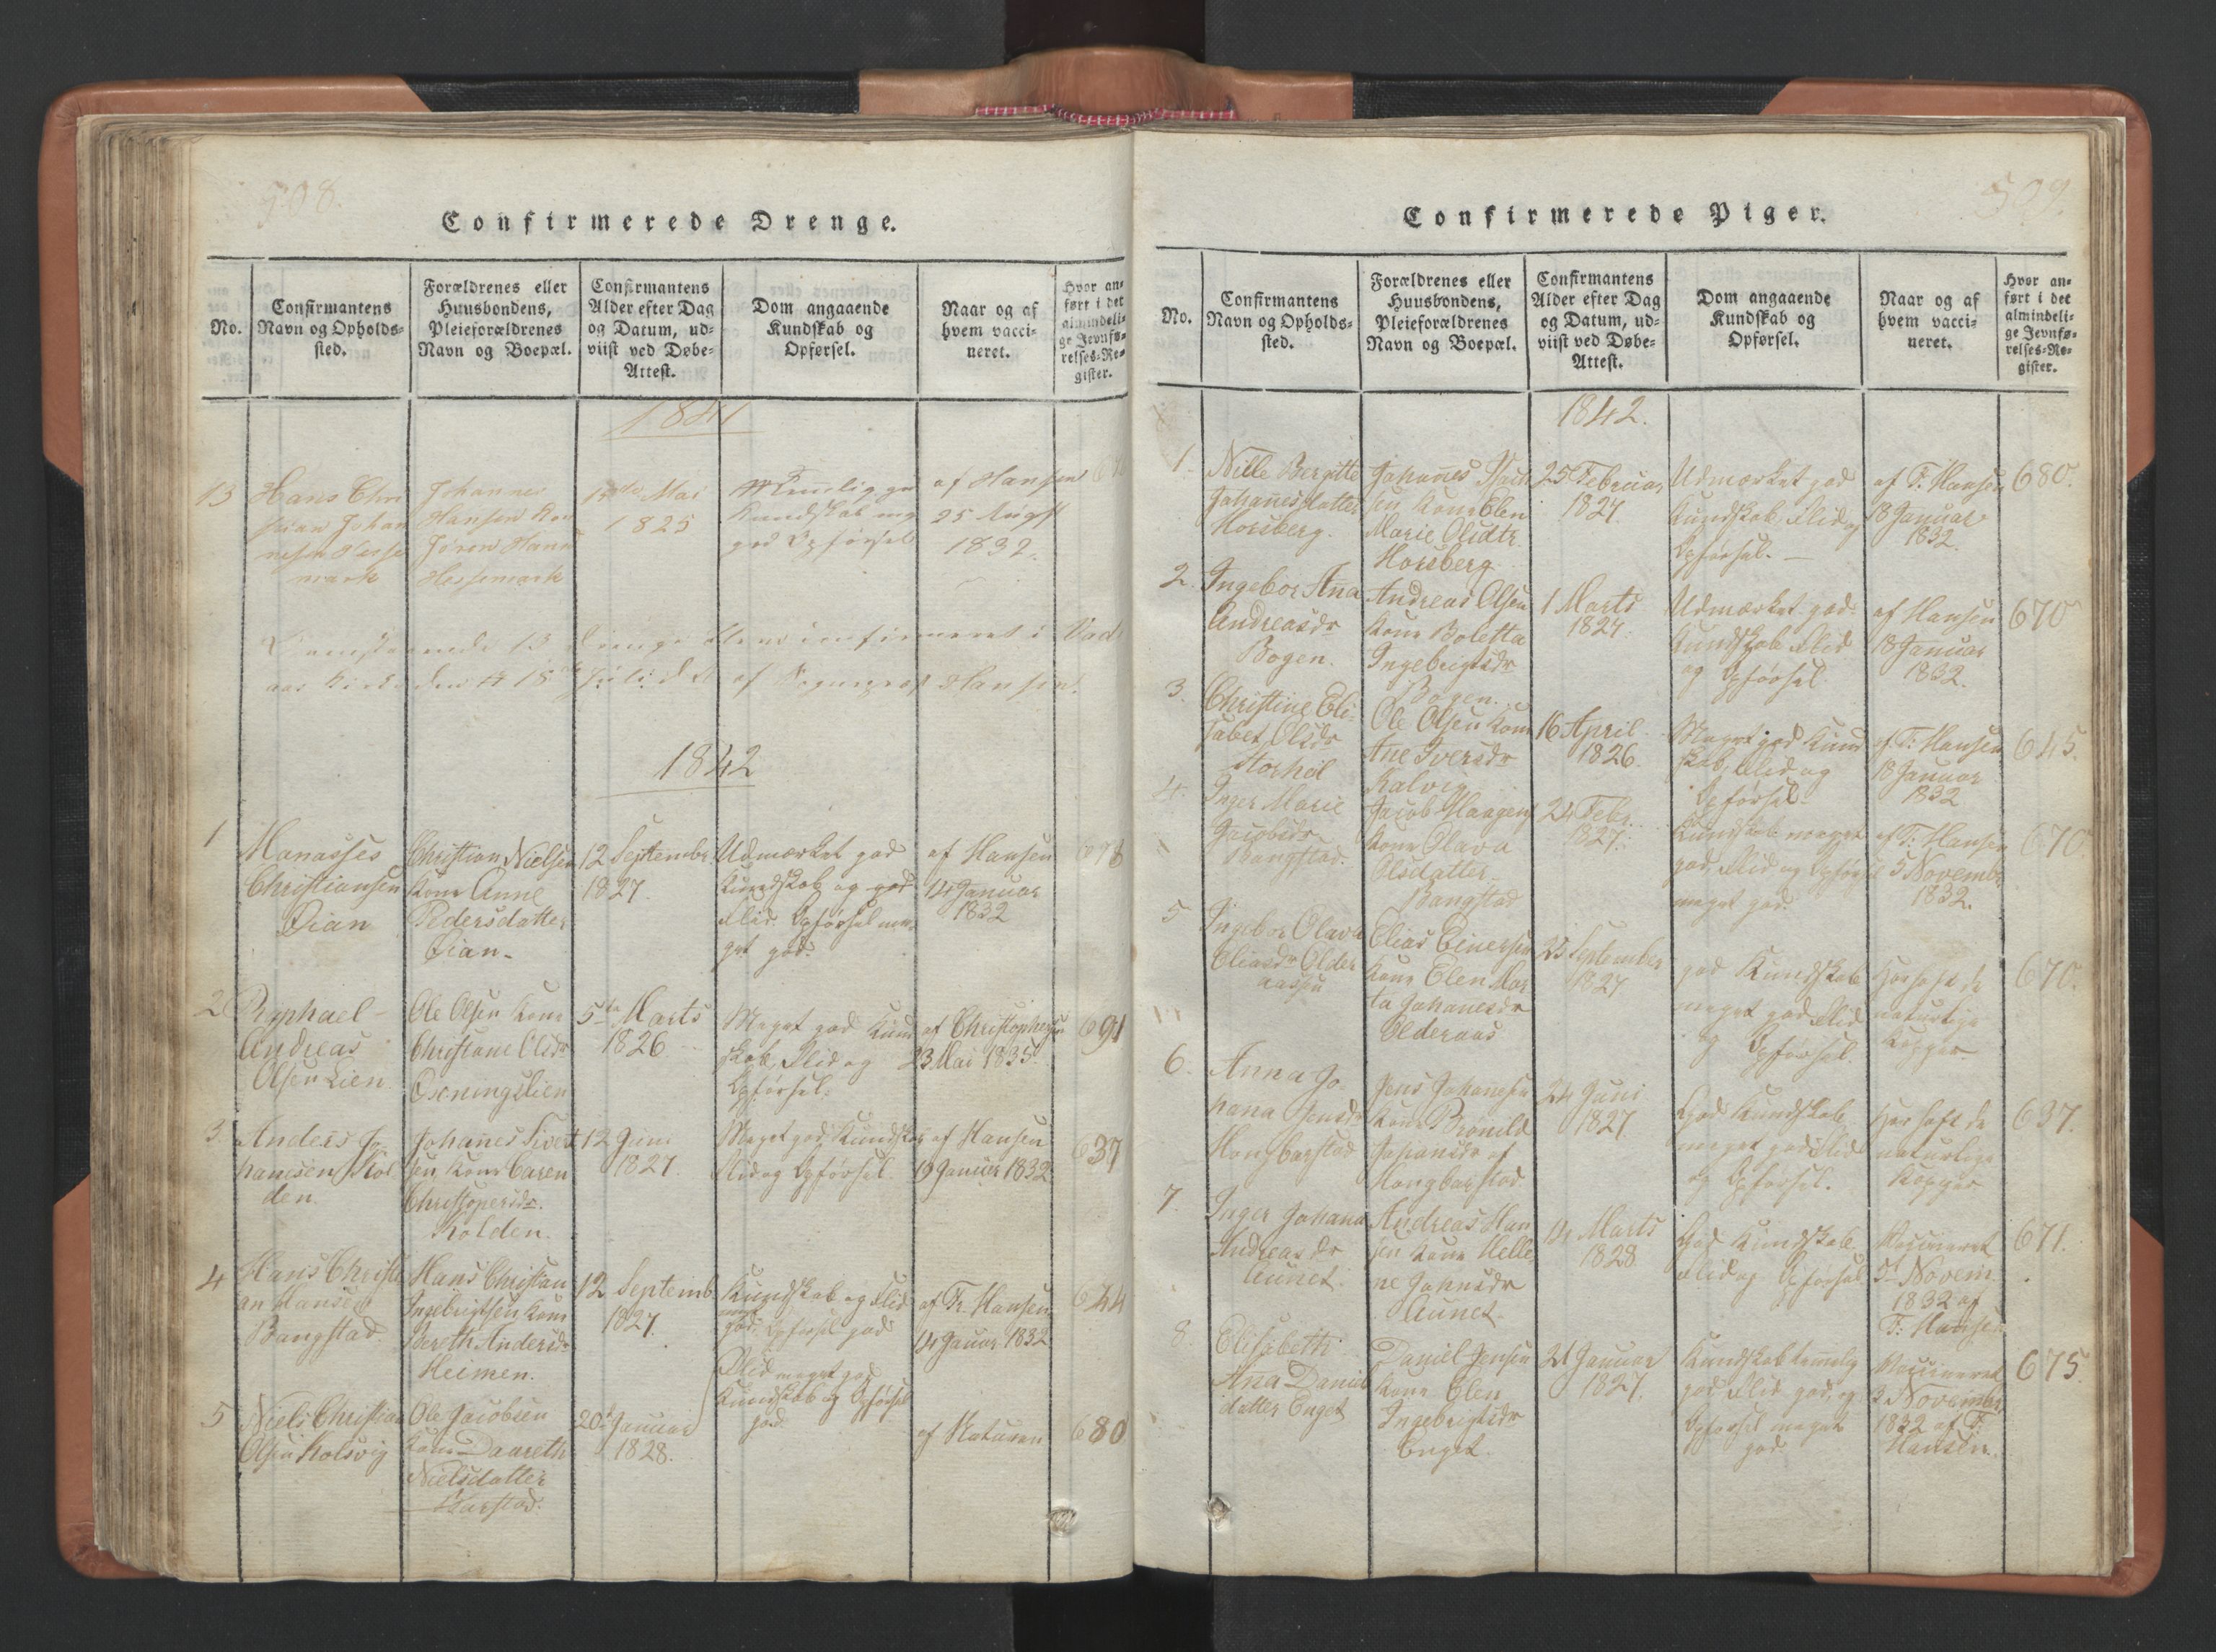 508.
Confirmerede Drenge.
No.
Confirmantens
Navn og Opholds-
sted.
Forældrenes eller
Huusbondens,
Pleieforældrenes
Navn og Boepæl.
Confirmantens
Alder efter Dag
og Datum, ud-
viist ved Døbe-
Attest.
Dom angaaende
Kundskab og
Opførsel.
Naar og af
hvem vacci-
neret.
Hvor an-
ført i det
almindeli-
ge Jevnfø-
relses-Re-
gister.
1841
13
Hans Chri
stian Johan
nesen Hesse
mark
Johannes
Hansen Kone
Jøren Hans
Hessemark
Mai
1825
Kundskab
god Opførsel
af Hansen
25 August
1832.
13 Drenge confirmeret i
Kirke den 18 Juli af Hansen.
1842
1
Manasses
Christiansen
Dian
Christian Nielsen
Kone Anne
Pedersdatter
Dian.
12 Septembr
1827.
Udmærket god
Kundskab og god
Flid. Opførsel me-
get god.
af Hansen
14 Januar
1832
698
2
Raphael
Andreas
Olsen Lien
Ole Olsen Kone
Christiane Olsdr
Oxningslien
5te Marts
1826
Meget god Kund
skab, Flid og
Opførsel.
af Christophersen
23 Mai 1835.
691
3
Anders Jo
hannesen Kol
den.
Johannes Sivert
sen, Kone Caren
Christopersdr.
Kolden.
12 Juni
1827.
Meget god Kundskab
Flid og Opførsel.
af Hansen
19 Januar 1832
637
4
Hans Christi
an Hansen
Bangstad.
Hans Christian
Ingebrigtsen Kone
Bereth Andersdr
Heimen.
12 Septemb
1827.
Kundskab og Flid
god, Opførsel god
af Fr. Hansen
14 Januar 1832
674
5
Niels Christian
Olsen Kolsvig
Ole Jacobsen
Kone Daareth
Nielsdatter
Skarstad.
20 Januar
1828.
Flid meget god
Kundskab og Opførsel
god.
af Naturen
680
509.
Confirmerede Piger.
No.
Confirmantens
Navn og Opholds-
sted.
Forældrenes eller
Huusbondens,
Pleieforældrenes
Navn og Boepæl.
Confirmantens
Alder efter Dag
og Datum, ud-
viist ved Døbe-
Attest.
Dom angaaende
Kundskab og
Opførsel.
Naar og af
hvem vacci-
neret.
Hvor an-
ført i det
almindeli-
ge Jevnfø-
relses-Re-
gister.
1842.
1.
Nille Bergitte
Johanesdatter
Horsberg.
Johanes
sen, Kone Elen
Marie Olsdtr.
Horsberg.
25 Februar
1827.
Udmærket god
Kundskab, Flid og
Opførsel.
af F: Hansen
18 Januar
1832.
680.
2.
Ingebor Ana
Andreasdr
Bogen.
Andreas Olsen
Kone Boletta
Ingebrigtsdr
Bogen.
1 Marts
1827.
Udmærket god
Kundskab, Flid
og Opførsel
af Hansen
18 Januar
1832.
670
3.
Christine Eli-
sabet Olsdr
Storheil
Ole Olsen Kone
Ane Iversdr
Kalvig
16 April
1826.
Meget god Kund
skab, Flid og
Opførsel.
af F: Hansen
18 Januar
1832
645.
4.
Inger Marie
Jacobsdr.
Bangstad.
Jacob Haagens
Kone Olava
Olsdatter
Bangstad
24 Febr.
1827.
Kundskab meget
god, Flid og Opførsel
meget god.
af F: Hansen
5 Novembr
1832.
670.
5
Ingebor Olava
Eliasdr Older
aasen
Elias Einersen
Kone Elen Mar
ta Johanesdr
Olderaas
23 September
1827
god Kundskab
meget god Flid
og Opførsel.
Har haft de
naturlige
Kopper
670.
6.
Anna Jo-
hana Jensdr
Hongbarstad
Jens Johanesen
Kone Bronild
Johansdr af
Hongbarstad
24 Juni
1827.
God Kundskab
meget god Flid
og Opførsel.
Har haft de
naturlige
Kopper
637.
7.
Inger Johana
Andreasdr
Aunet.
Andreas Han
sen Kone Helle
ne Johnsdr
Aunet.
14 Marts
1828
God Kundskab
Flid og Opførsel
Vaccineret
5 Novem
1832 af
F: Hansen
671.
8
Elisabeth
Ana Daniel
datter Enget
Daniel Jensen
Kone Elen
Ingebrigtsdr
Enget.
21 Januar
1827.
Kundskab temmelig
god, Flid god, og
Opførsel meget
god.
Vaccineret
3 November
1832 af F:
Hansen.
675.